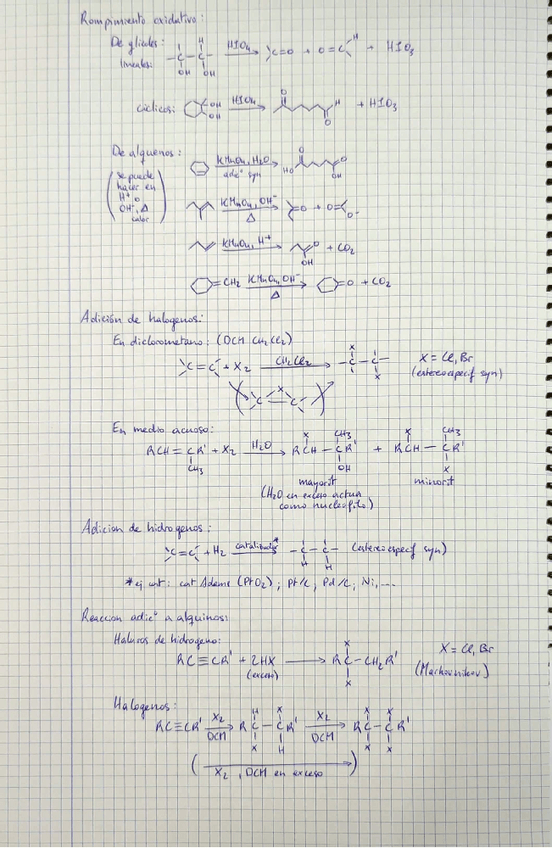 Rompimiento oxidativo:
De glicoles lineales: -C-C- H OH OH HIO4 → C=O + O=C H + HIO3
cíclicos: OH OH HIO4 → O H O + HIO3
De alquenos:
(se puede hacer en H+ o OH-, Δ calor)
KMnO4, H2O adic° syn → HO O O OH
KMnO4, OH- Δ → O + O=C O-
KMnO4, H+ → O OH + CO2
=CH2 KMnO4, OH- Δ → =O + CO2
Adición de halogenos:
En diclorometano: (DCM CH2Cl2)
C=C + X2 CH2Cl2 → X -C-C- X X = Cl, Br
(estereoespecif syn)
( X C=C )
En medio acuoso:
RCH=CR' CH3 + X2 H2O → X RCH-CR' CH3 OH + X RCH-CR' CH3 X
mayorit minorit
(H2O en exceso actua
como nucleófilo)
Adicion de hidrogenos:
C=C + H2 catalizador* → -C-C- H H (estereoespecif syn)
*ej cat: cat Adams (PtO2), Pt/C, Pd/C, Ni,...
Reaccion adic° a alquinos:
Haluros de hidrogeno:
RC≡CR' + 2HX (exceso) → X RC-CH2R' X X = Cl, Br
(Markovnikov)
Halogenos:
RC≡CR' X2 DCM → H X RC-CR' X H X2 DCM → X X RC-CR' X X
( → X2, DCM en exceso )